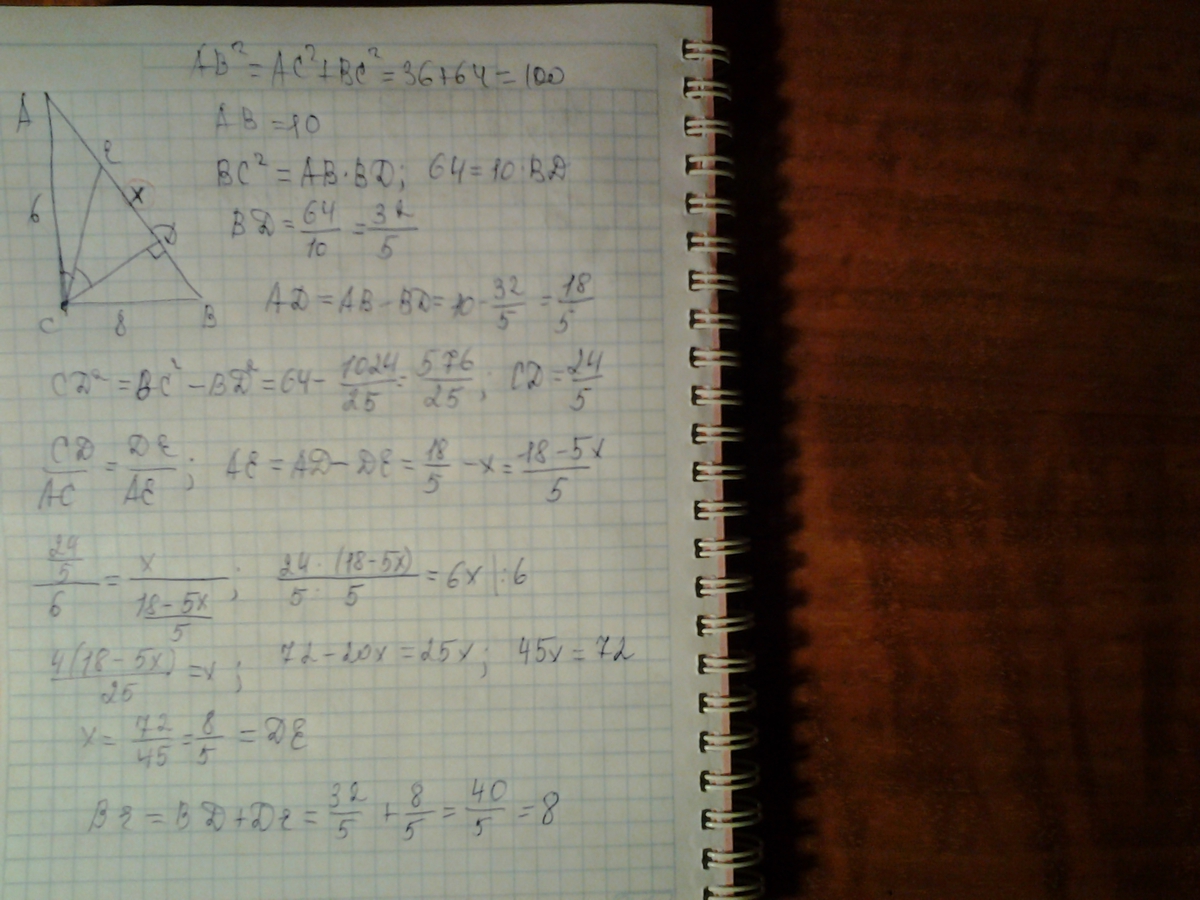 AB² = AC² + BC² = 36 + 64 = 100
A
AB = 10
E
BC² = AB · BD; 64 = 10 · BD
x
6
BD = 64/10 = 32/5
D
AD = AB - BD = 10 - 32/5 = 18/5
C 8 B
CD² = BC² - BD² = 64 - 1024/25 = 576/25; CD = 24/5
CD/AC = DE/AE; AE = AD - DE = 18/5 - x = (18 - 5x)/5
(24/5)/6 = x/((18 - 5x)/5); (24 · (18 - 5x))/(5 · 5) = 6x | : 6
4(18 - 5x)/25 = x; 72 - 20x = 25x; 45x = 72
x = 72/45 = 8/5 = DE
BE = BD + DE = 32/5 + 8/5 = 40/5 = 8